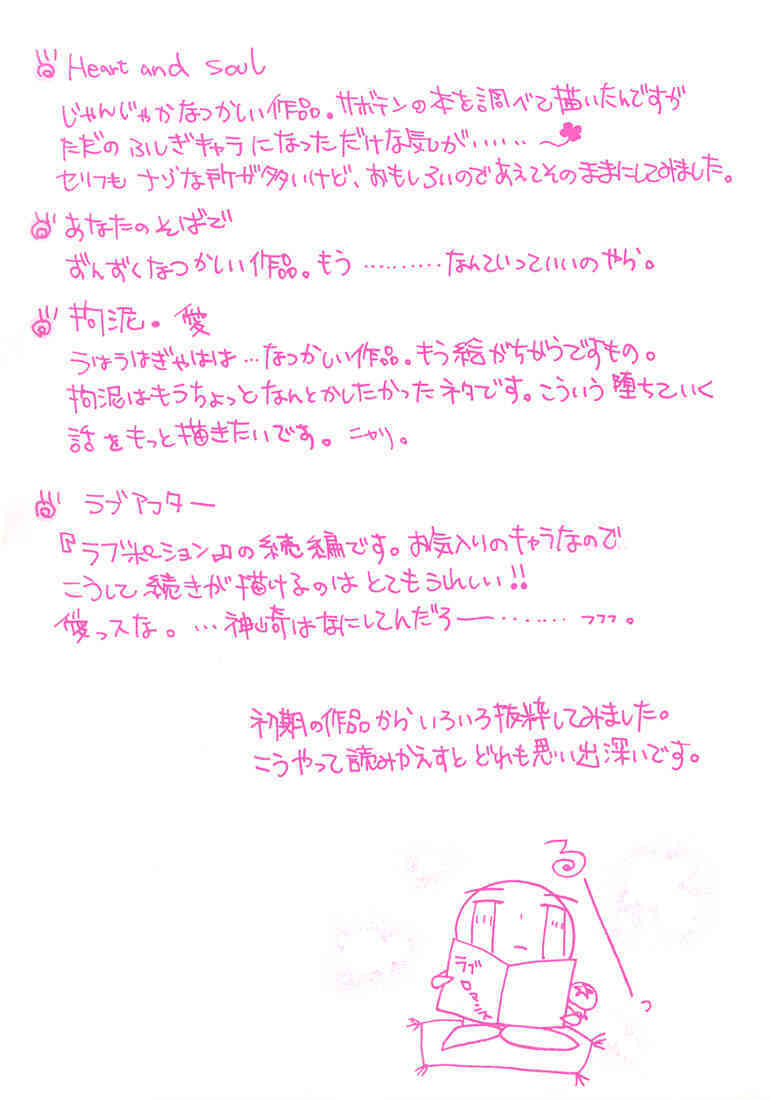 Heart and Soul
じゃんじゃかなつかしい作品。サボテンの本を調べて描いたんですが
ただのふしぎキャラになっただけな気が‥‥‥
セリフもナゾな所が多いけど、おもしろいのであえてそのままにしてみました。
あなたのそばで
ずんずくなつかしい作品。もう ………… なんていっていいのやら。
拘泥。愛
うはうはぎゃはは…なつかしい作品。もう絵がちがうですもの。
拘泥はもうちょっとなんとかしたかったネタです。こういう堕ちていく
話をもっと描きたいです。ニヤリ。
ラブアフター
『ラブポーション』の続編です。お気入りのキャラなので
こうして続きが描けるのはとてもうれしい!!
愛っスな。…神崎はなにしてんだろー……… フフフ。
初期の作品からいろいろ抜粋してみました。
こうやって読みかえすとどれも思い出深いです。
る
っ
ラブ